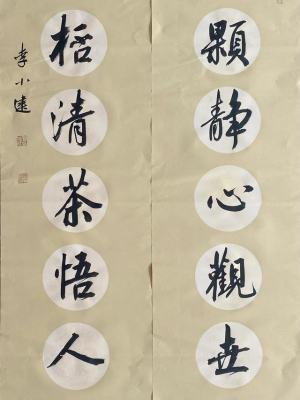 顆靜心觀世
桮清茶悟人
李小遠